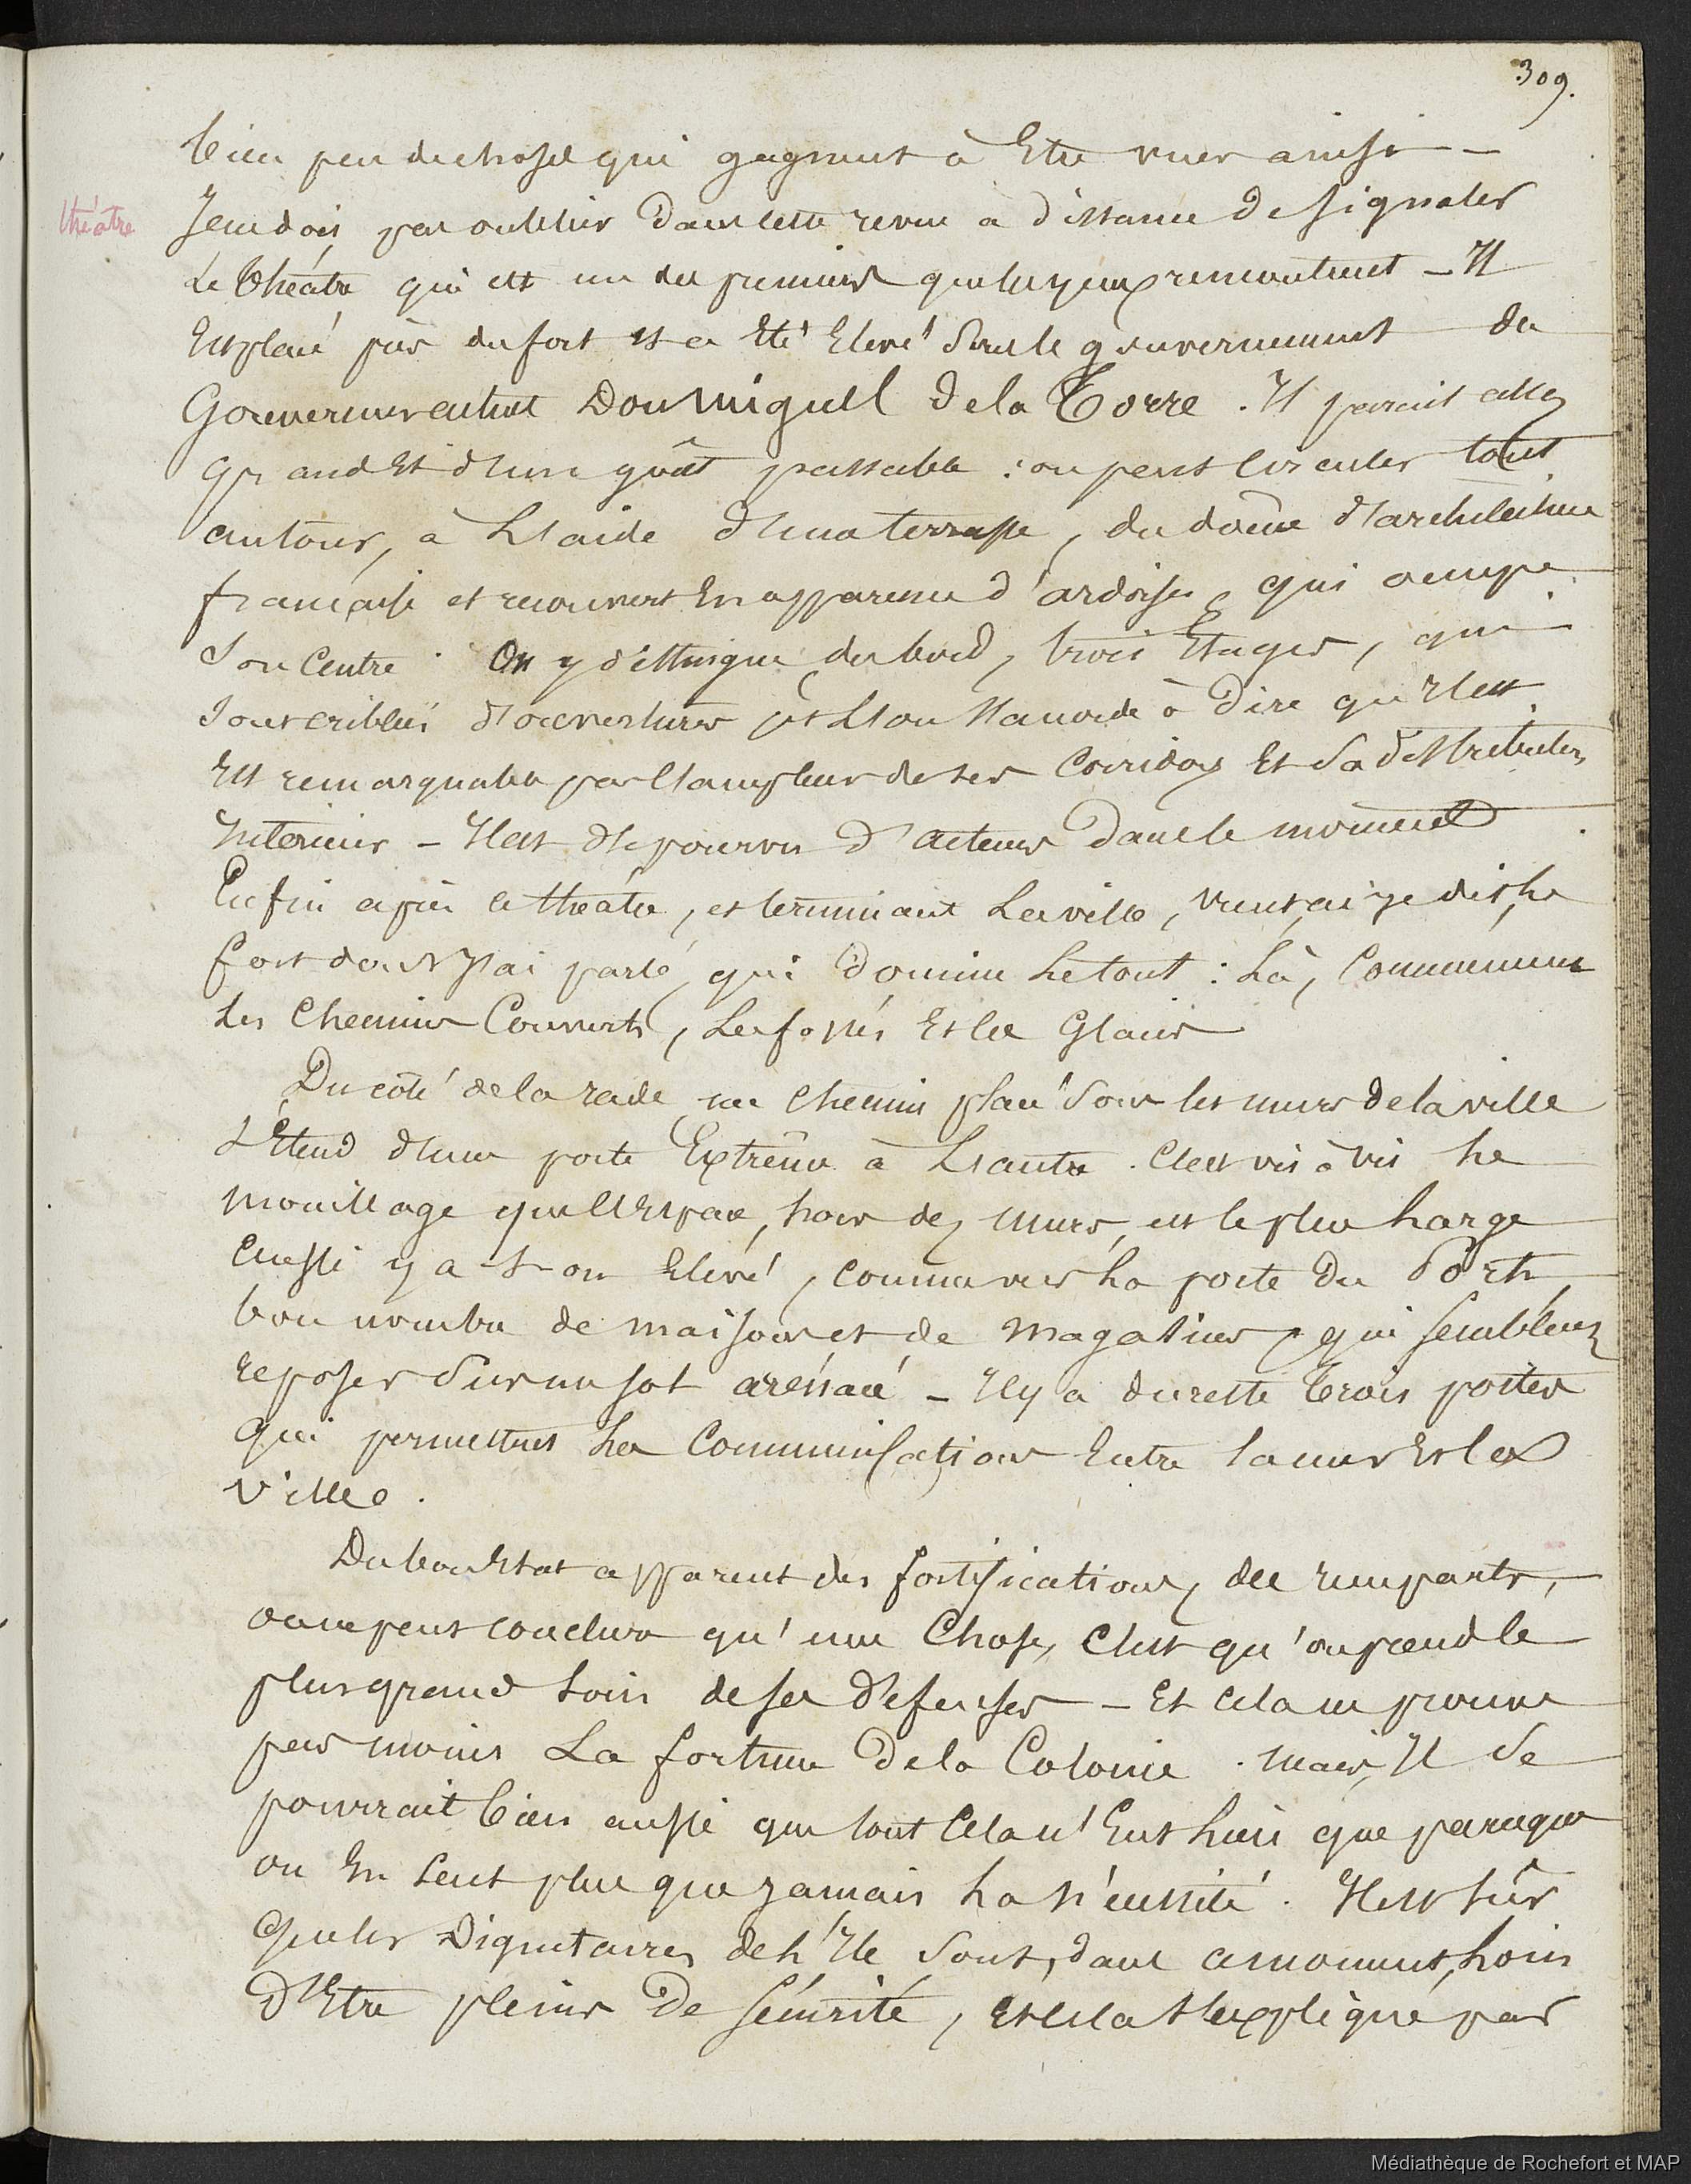 309.
bien peu de choses qui gagnent à Etre vues ainsi —
théatre
Je ne dois pas oublier dans cette revue a distance de signaler
Le théatre qui est un des premiers que les yeux rencontrent — Il
Est placé près du fort et a Eté Elevé sous le gouvernement du
Gouverneur actuel Don Miguel de la Torre . Il parait assez
grand Et d'un goût passable : on peut circuler tout
autour, à L'aide d'une terrasse, du dôme d'architecture
française et recouvert En apparence d'ardoises, qui occupe
son Centre . On y distingue du bord, trois Etages, qui
sont criblés d'ouvertures et L'on s'accorde à dire qu'il est
Est remarquable par l'ampleur de ses Corridors Et sa distribution
Interieur — Il est dépourvu d'acteurs dans le moment
Enfin après le théatre, et terminant La ville, vient, ai-je dit, le
fort dont J'ai parlé, qui domine Le tout : Là, Commencent
Les Chemins Couverts, Les fossés Et les Glacis
Du côté de la rade, un chemin placé sous les murs de la ville
s'Etend d'une porte Extrême à L'autre . C'est vis à vis Le
mouillage que l'Espace, hors des murs, est le plus Large
aussi y a-t-on Elevé, comme vers La porte du Port,
bon nombre de maisons et de magasins, qui semblent
reposer sur un sol arénacé — Il y a du reste trois portes
qui permettent Les Communications Entre la mer Et la
ville .
Du bon Etat apparent des fortifications, des remparts,
on ne peut conclure qu'une Chose, C'est qu'on prend le
plus grand soin de ses défenses — Et cela ne prouve
pas moins La fortune de la Colonie . Mais, Il se
pourrait bien aussi que tout Cela n'Eut Lieu que parceque
on En sent plus que jamais La nécessité . Il est sûr
que les Dignitaires de L'Ile sont, dans ce moment, Loin
d'Etre pleins de sécurité, Et cela s'explique par
Médiathèque de Rochefort et MAP